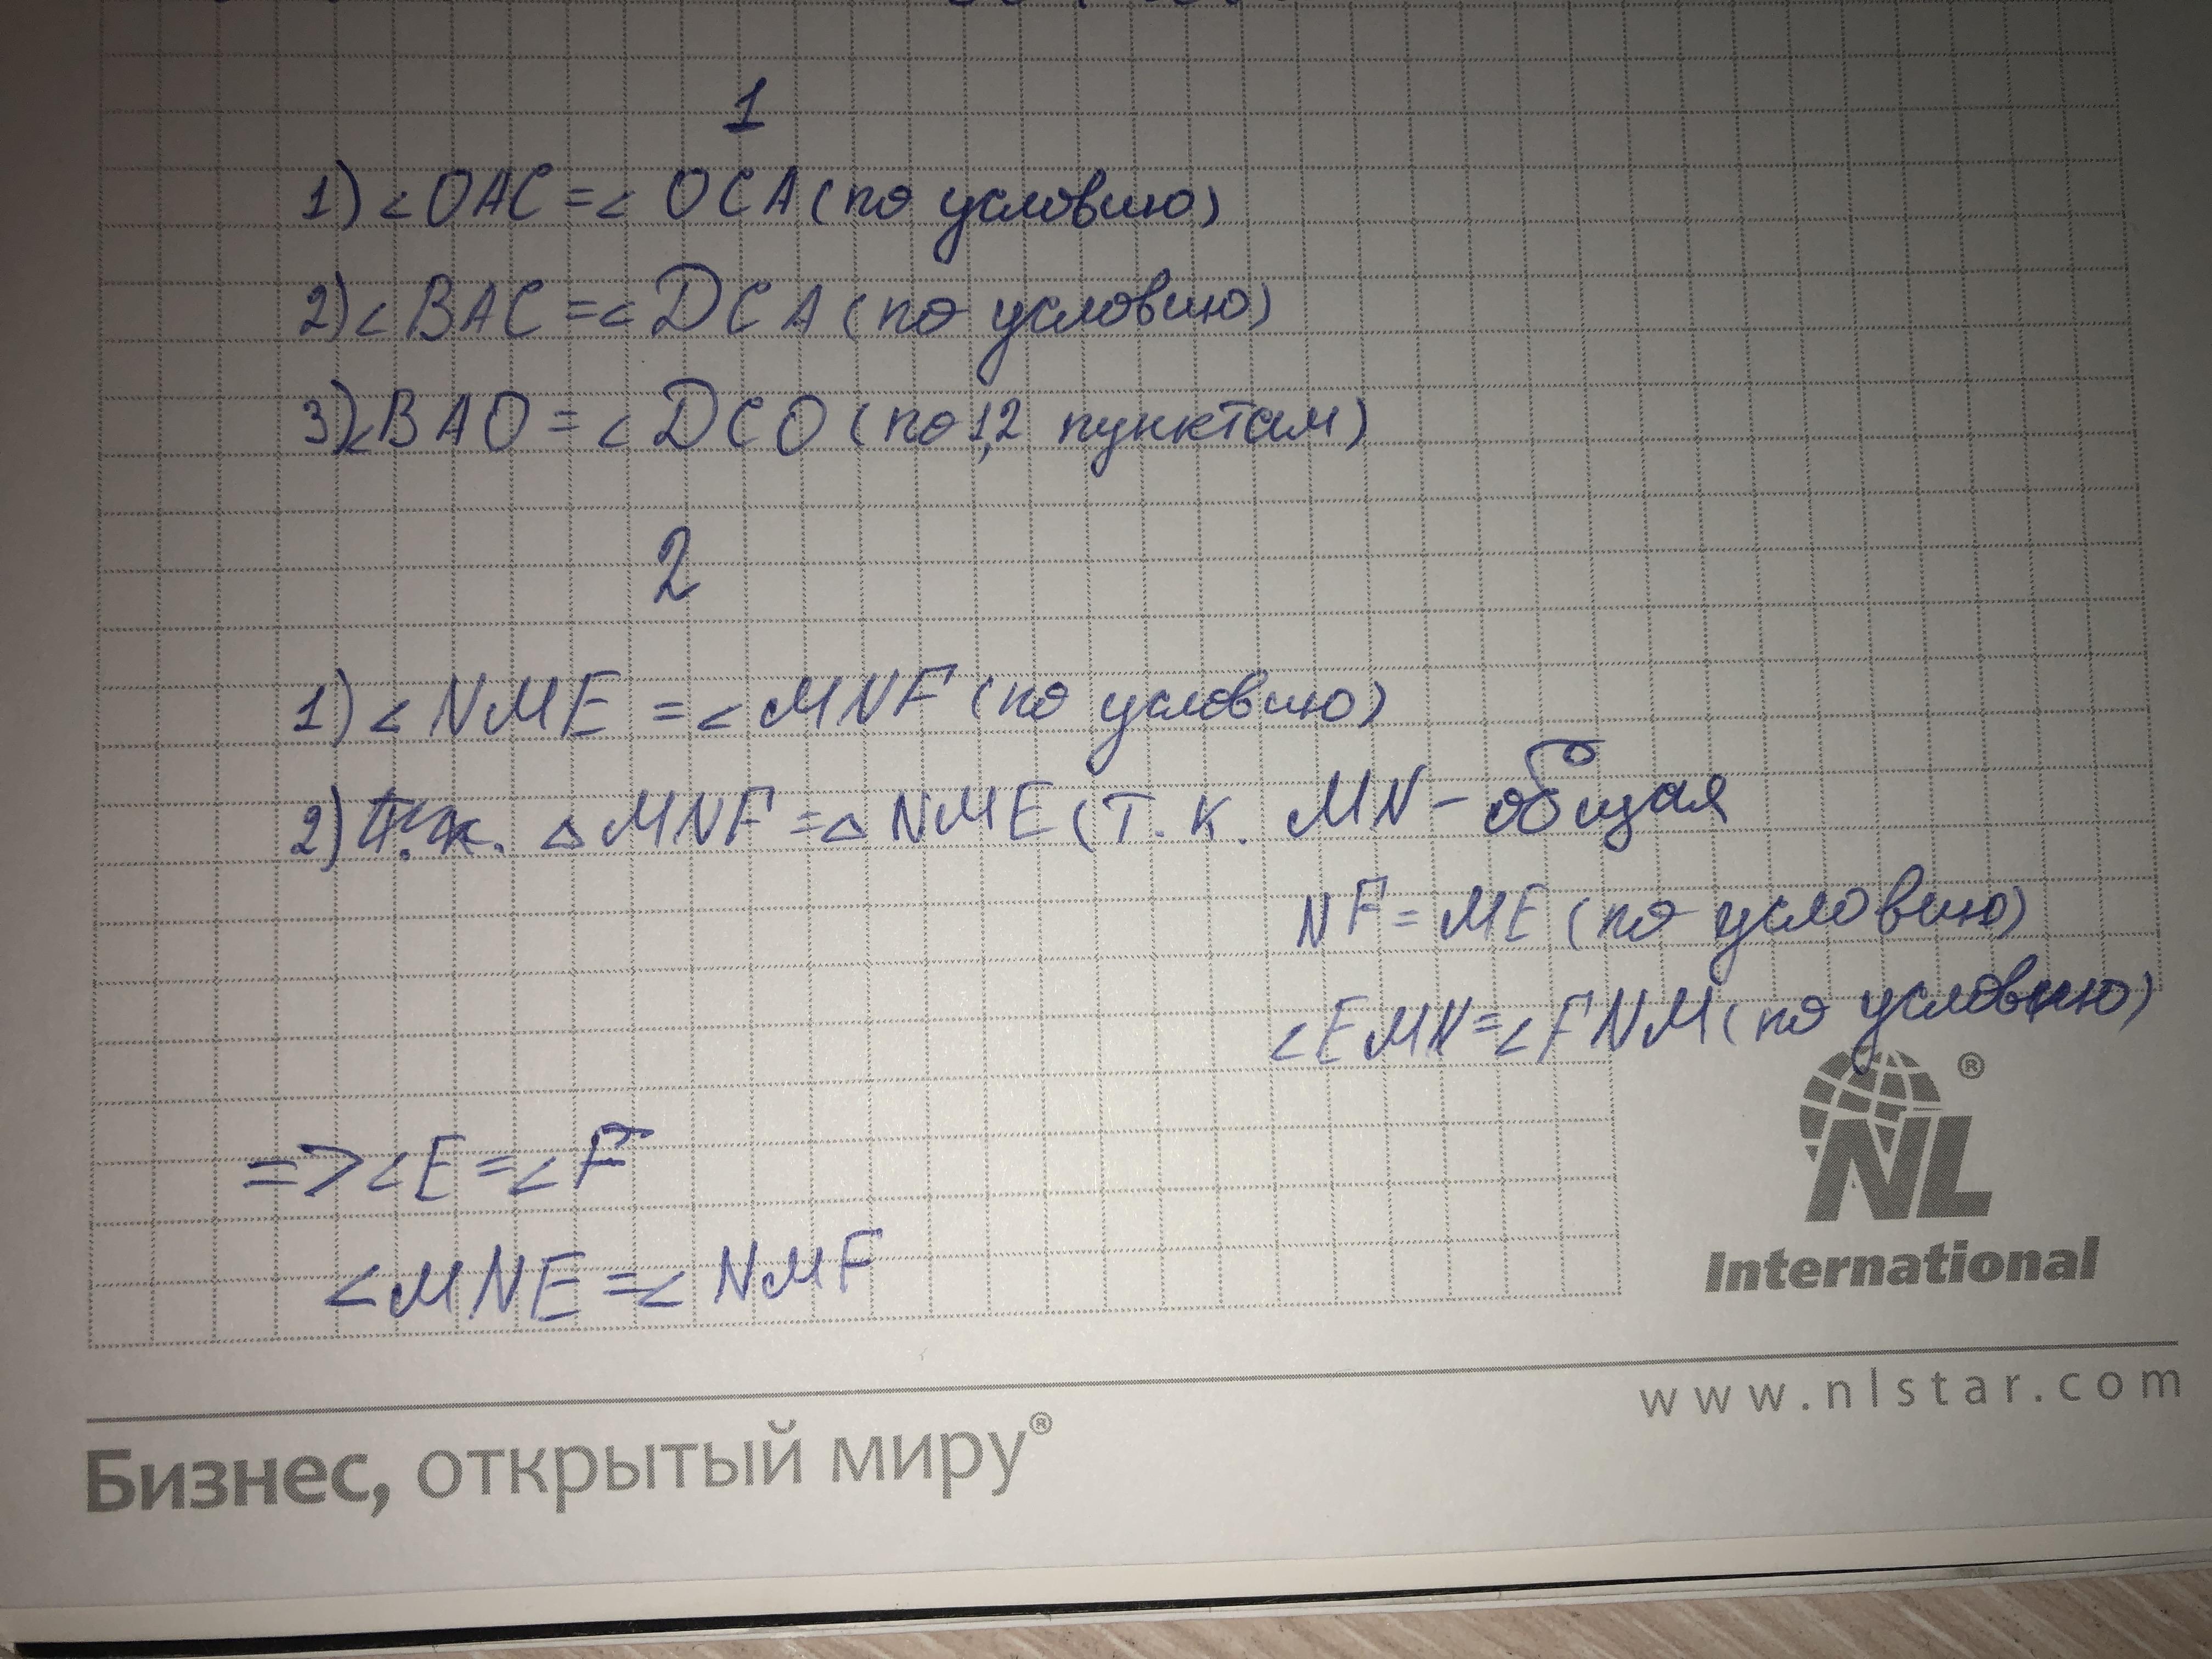 1
1) < OAC = < OCA (по условию)
2) < BAC = < DCA (по условию)
3) < BAO = < DCO (по 1,2 пунктам)
2
1) < NME = < MNF (по условию)
2) Т.к. △ MNF = △ NME (т.к. MN – общая
NF = ME (по условию)
< EMN = < FNM (по условию)
=> < E = < F
< MNE = < NMF
NL®
International
www.nlstar.com
Бизнес, открытый миру®